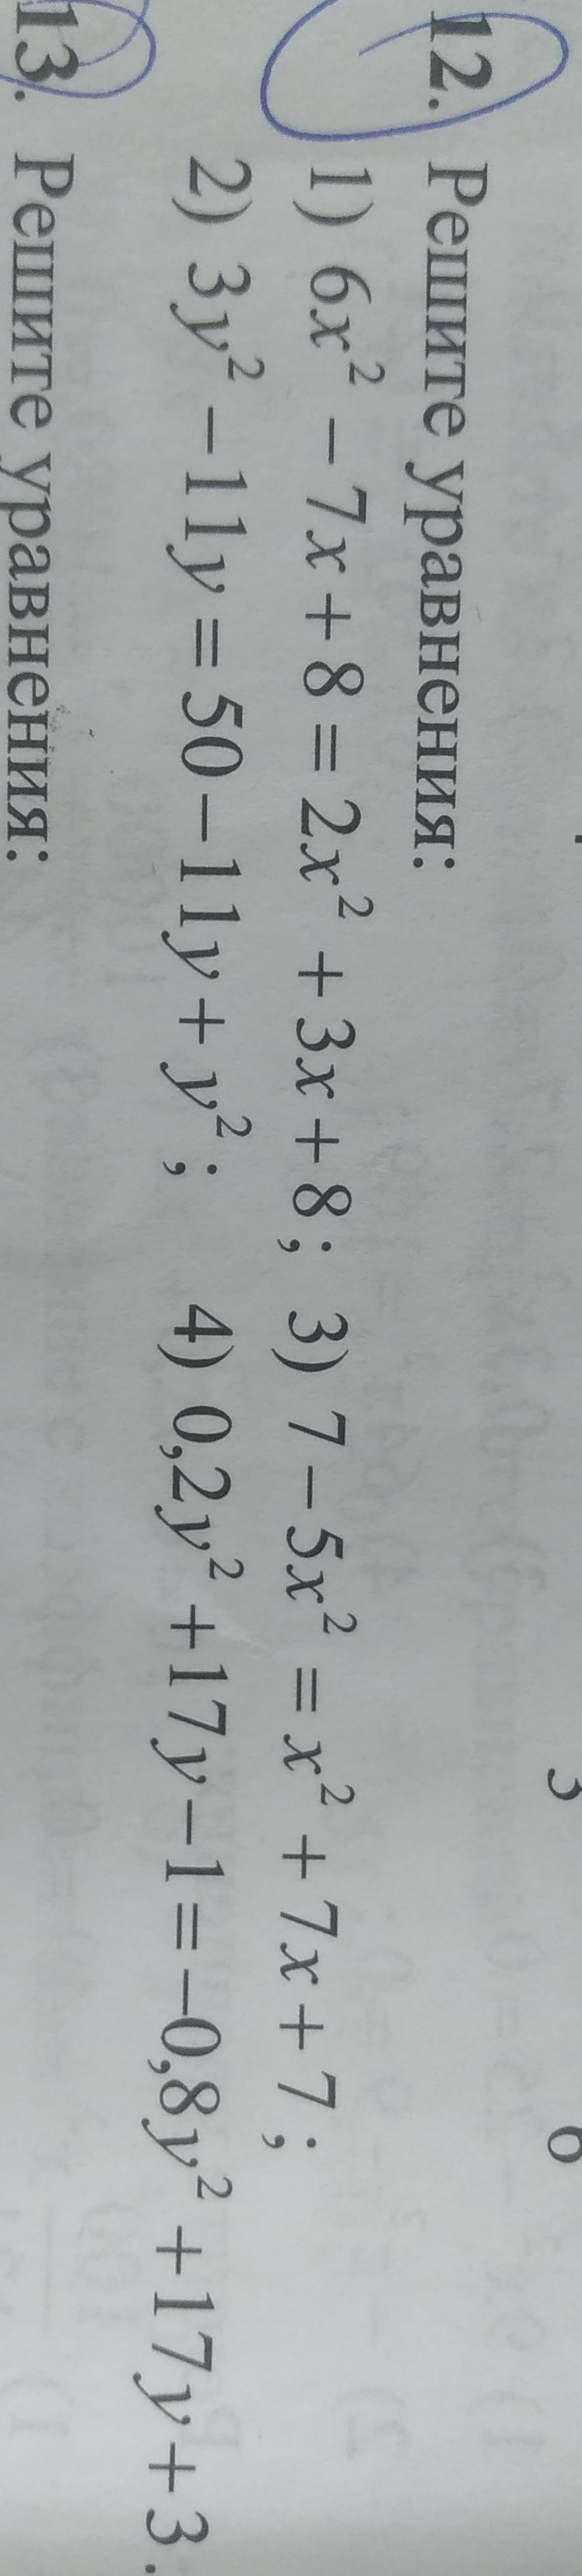 12. Решите уравнения:
1) 6x² − 7x + 8 = 2x² + 3x + 8; 3) 7 − 5x² = x² + 7x + 7;
2) 3y² − 11y = 50 − 11y + y²; 4) 0,2y² + 17y − 1 = −0,8y² + 17y + 3.
13. Решите уравнения: